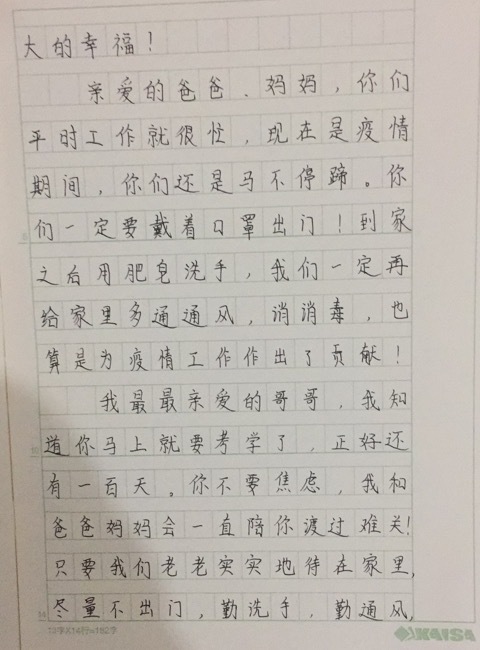 大的幸福！
亲爱的爸爸、妈妈，你们
平时工作就很忙，现在是疫情
期间，你们还是马不停蹄。你
们一定要戴着口罩出门！到家
之后用肥皂洗手，我们一定再
给家里多通通风，消消毒，也
算是为疫情工作作出了贡献！
我最最亲爱的哥哥，我知
道你马上就要考学了，正好还
有一百天。你不要焦虑，我和
爸爸妈妈会一直陪你渡过难关！
只要我们老老实实地待在家里，
尽量不出门，勤洗手，勤通风，
13字X14行=182字
KAISA